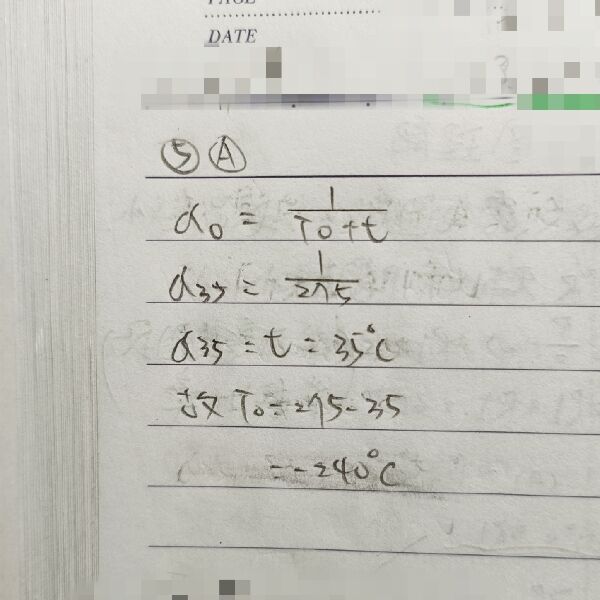 DATE
⑤ Ⓐ
α₀ = 1/(T₀+t)
α₃₅ = 1/275
α₃₅ = t = 35°C
故 T₀ = 275-35
= -240°C